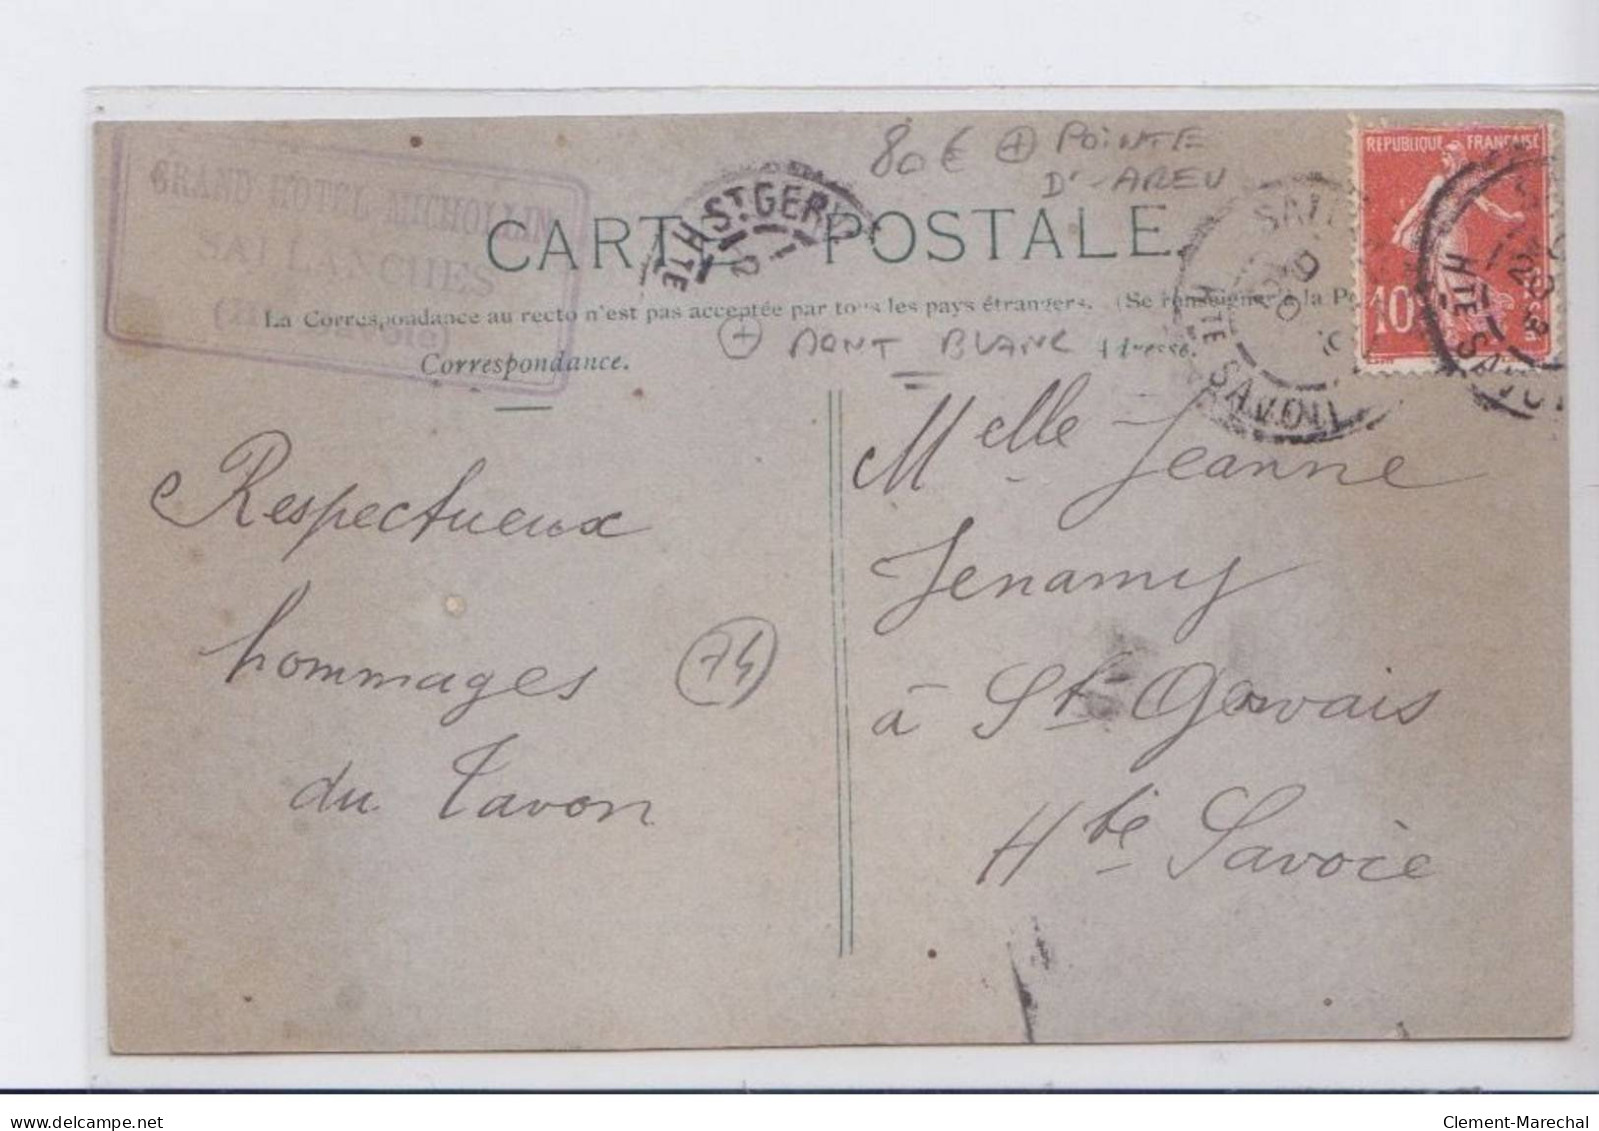 GRAND HOTEL MICHOLLIN
SALLANCHES
80€ + POINTE
D'AREU
REPUBLIQUE FRANÇAISE
10
Hte St. GERV
CARTE POSTALE
SALL
Hte SAVOIE
Hte SAVOI
La Correspondance au recto n'est pas acceptée par tous les pays étrangers. (Se renseigner à la Po
+ MONT BLANC
Correspondance.
Adresse.
Respectueux
hommages
du Tavon
74
Melle Jeanne
Jenamy
à St Gervais
Hte Savoie
delcampe.net
Clement-Marechal